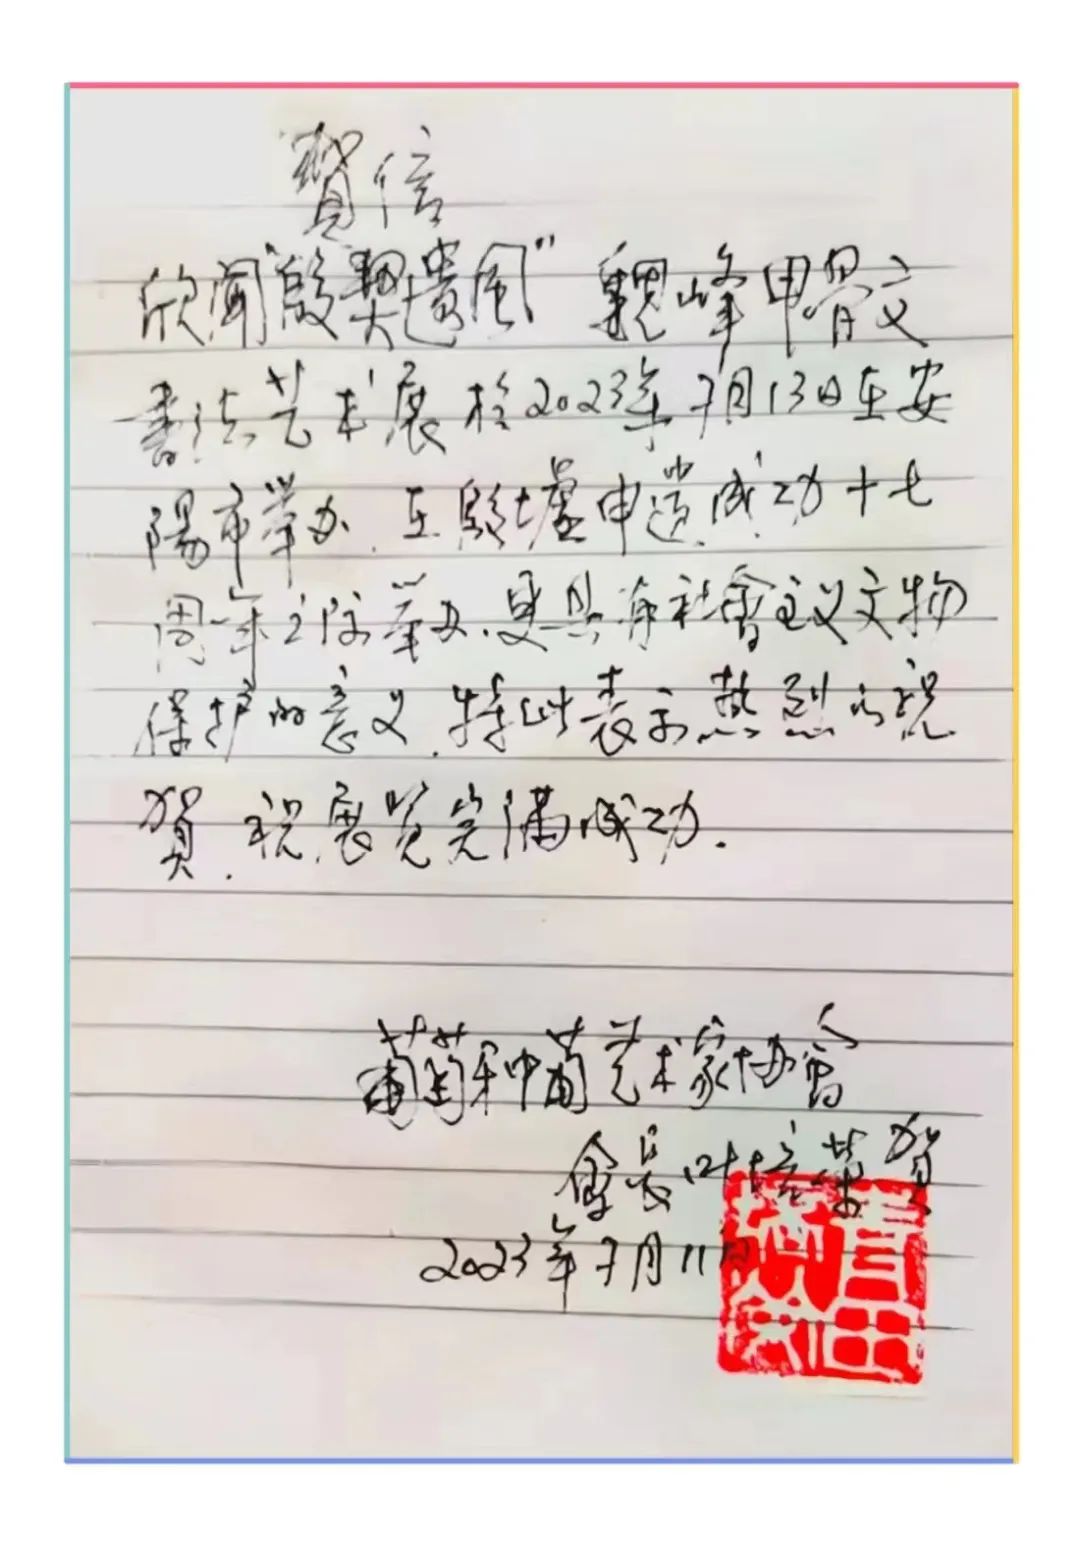 賀信
欣闻"殷契遗風"魏峰甲骨文
書法艺术展於2023年7月13日在安
陽市举办.在殷墟申遗成功十七
周年之际举办.更具有社會主义文物
保护的意义.特此表示热烈的祝
賀.祝展览完满成功.
葡萄种苗艺术家协會
會長叶培荣賀
2023年7月11日